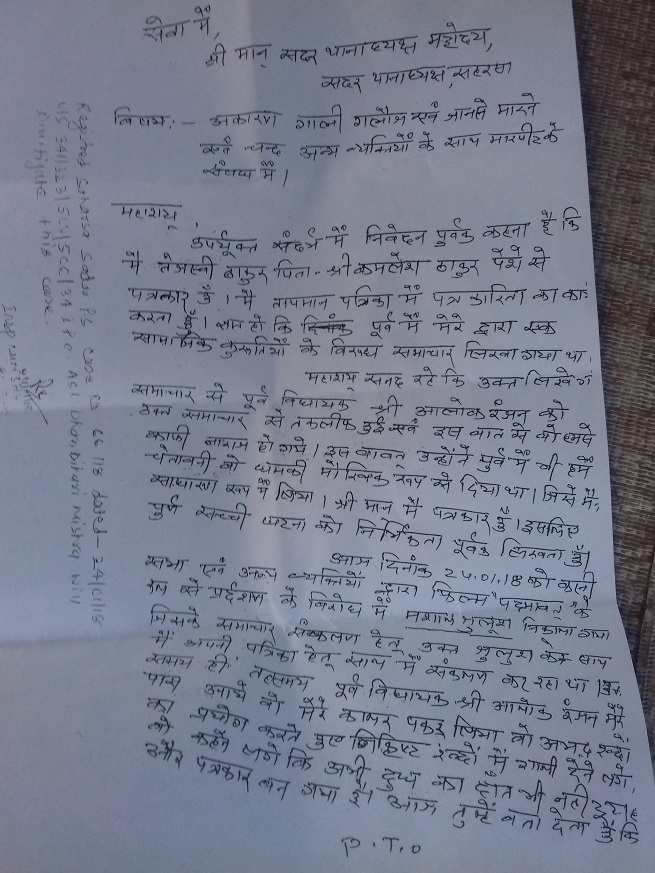 सेवा में,
श्री मान् सदर थानाध्यक्ष महोदय,
सदर थानाध्यक्ष, सहरसा
विषय:- अकारण गाली गलौज एवं जानसे मारने
एवं चन्द अन्य व्यक्तियों के साथ मारपीट के
संबंध में।
महाशय,
उपर्युक्त संदर्भ में निवेदन पूर्वक कहना है कि
मैं तेजस्वी ठाकुर पिता- श्री कमलेश ठाकुर पेशे से
पत्रकार हूँ। मैं तापमान पत्रिका में पत्रकारिता का का
करता हूँ। ज्ञात हो कि पूर्व में मेरे द्वारा एक
सामाजिक कुरूतियों के विरुद्ध समाचार लिखा गया था।
महाशय सनद रहे कि उक्त लिखे गए
समाचार से पूर्व विधायक श्री आलोक रंजन को
उक्त समाचार से तकलीफ हुई एवं इस बात से वो हमसे
काफी नाराज हो गये। इस बावत् उन्होंने पूर्व में भी हमें
चेतावनी वो धमकी मौखिक रूप से दिया था। जिसे मैं,
साधारण रूप में लिया। श्री मान मैं पत्रकार हूँ। इसलिए
पूर्ण सच्ची घटना को निर्भिकता पूर्वक लिखता हूँ।
आज दिनांक 24.01.18 को करनी
सभा एवं अन्य व्यक्तियों द्वारा फिल्म "पद्मावत्" के
रूप से प्रर्दशन के विरोध में मशाल जुलूश निकाला गया
जिसके समाचार संकलण हेतु उक्त जुलूश के साथ
मैं अपनी पत्रिका हेतु साथ में संकलण कर रहा था।
समय ही तत्समय पूर्व विधायक श्री आलोक रंजन मेरे
पास आये वो मेरे कालर पकड़ लिया वो अभद्र शब्दों
का प्रयोग करते हुए शब्दों में गाली देने लगे,
वो कहने लगे कि अभी दूध का दाँत भी नहीं टूटा है
और पत्रकार बन गया है। आज तुम्हें बता देता हूँ कि
P.T.O
Registered Saharsa Sadar P.S. Case No 66/18 dated- 24/01/18
U/S 341/323/504/506/34 IPC ASI Dhanbihari Mistry will
investigate this case.